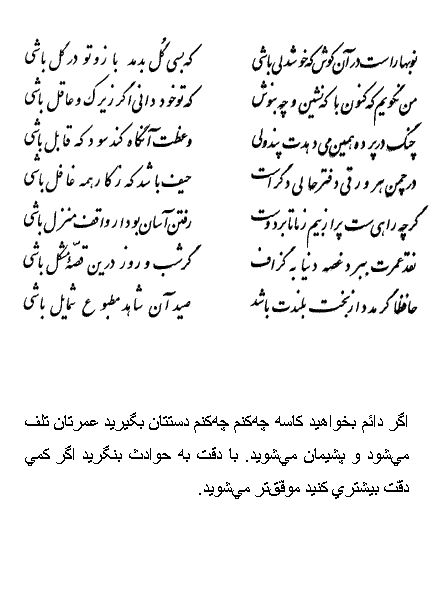 نوبهار است در آن کوش که خوشدل باشی
که بسی گل بدمد باز و تو در گل باشی
من نگویم که کنون با که نشین و چه بنوش
که تو خود دانی اگر زیرک و عاقل باشی
چنگ در پرده همین می دهدت پند ولی
وعظت آنگاه کند سود که قابل باشی
در چمن هر ورقی دفتر حالی دگر است
حیف باشد که ز کار همه غافل باشی
گرچه راهی ست پر از بیم ز ما تا بر دوست
رفتن آسان بود ار واقف منزل باشی
نقد عمرت ببرد غصه دنیا به گزاف
گر شب و روز درین قصّه مشکل باشی
حافظا گر مدد از بخت بلندت باشد
صید آن شاهد مطبوع شمایل باشی
اگر دائم بخواهيد كاسه چه‌كنم چه‌كنم دستتان بگيريد عمرتان تلف
مي‌شود و پشيمان مي‌شويد. با دقت به حوادث بنگريد اگر كمي
دقت بيشتري كنيد موفق‌تر مي‌شويد.